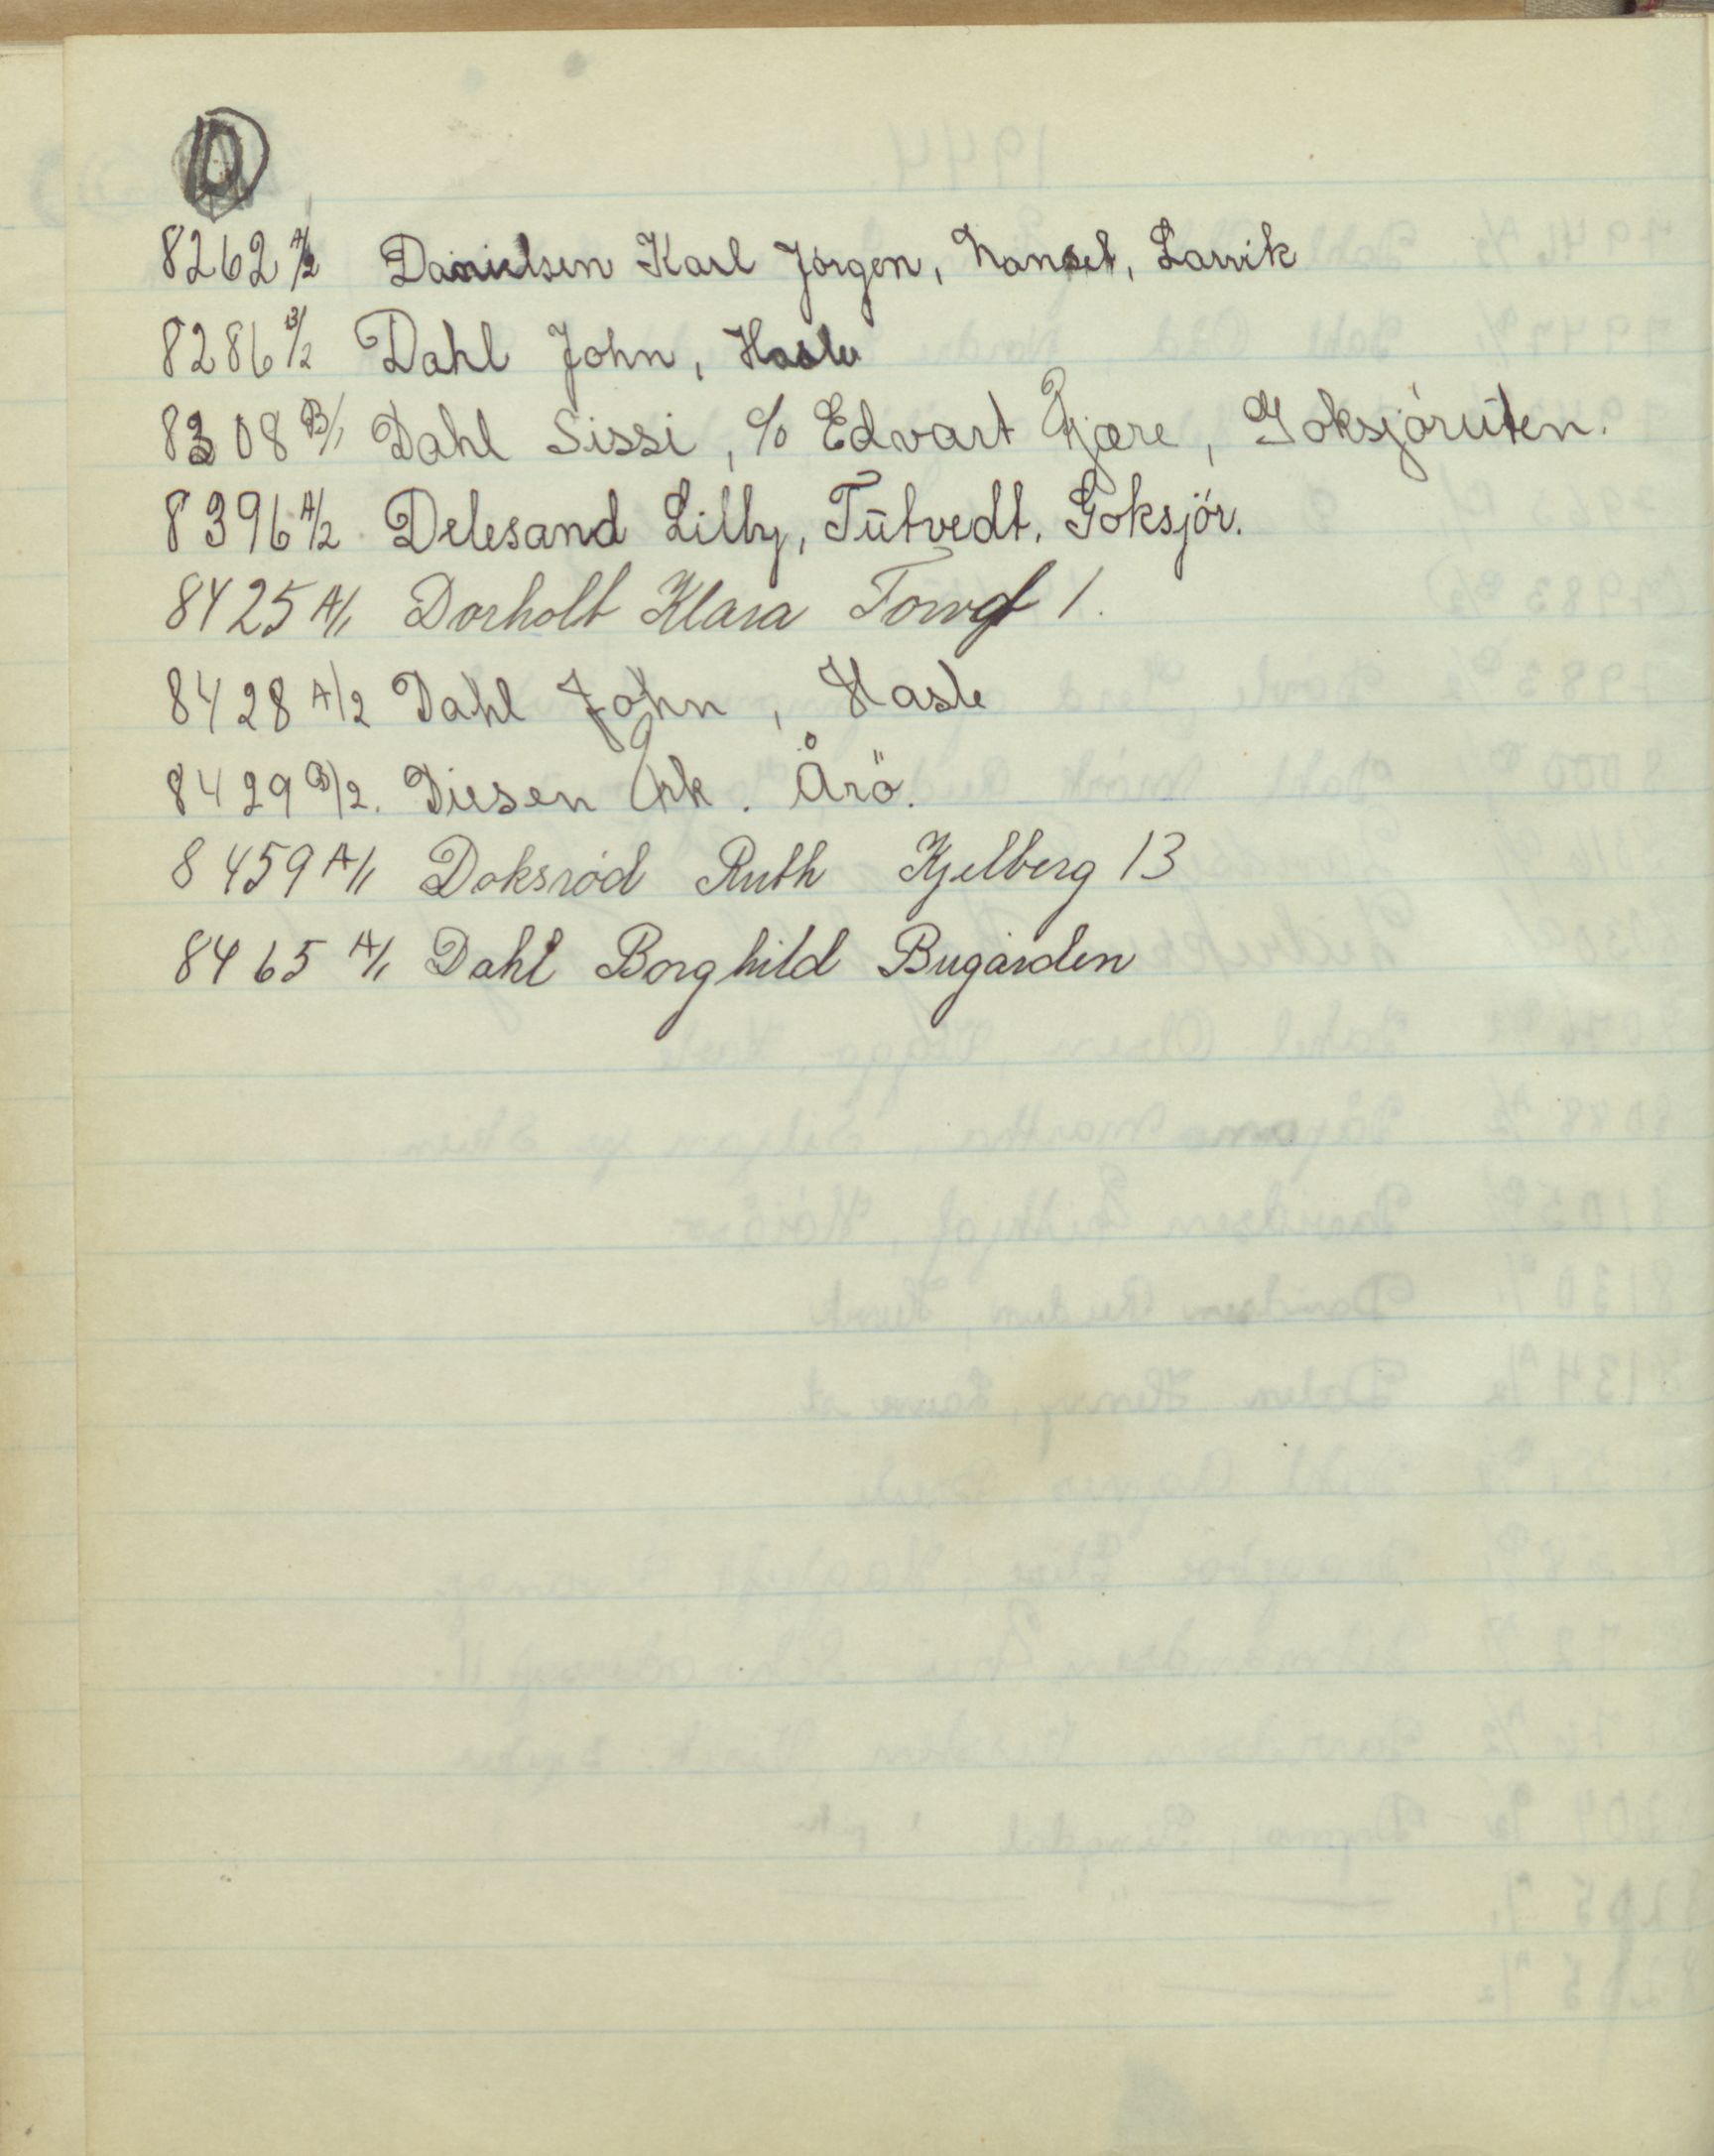 D
8262 A/2 Danielsen Karl Jörgen, Nanset, Larvik
8286 B/2 Dahl John, Hasle
8308 B/1 Dahl Sissi, c/o Edvart Gjære, Goksjöruten.
8396 A/2 Delesand Lilly, Tutvedt, Goksjör.
8425 A/1 Dorholt Klara Torvgt 1.
8428 A/2 Dahl John, Hasle
8429 B/2. Diesen Ark. Årö.
8459 A/1 Doksröd Ruth Kjelberg 13
8465 A/1 Dahl Borghild Bugården